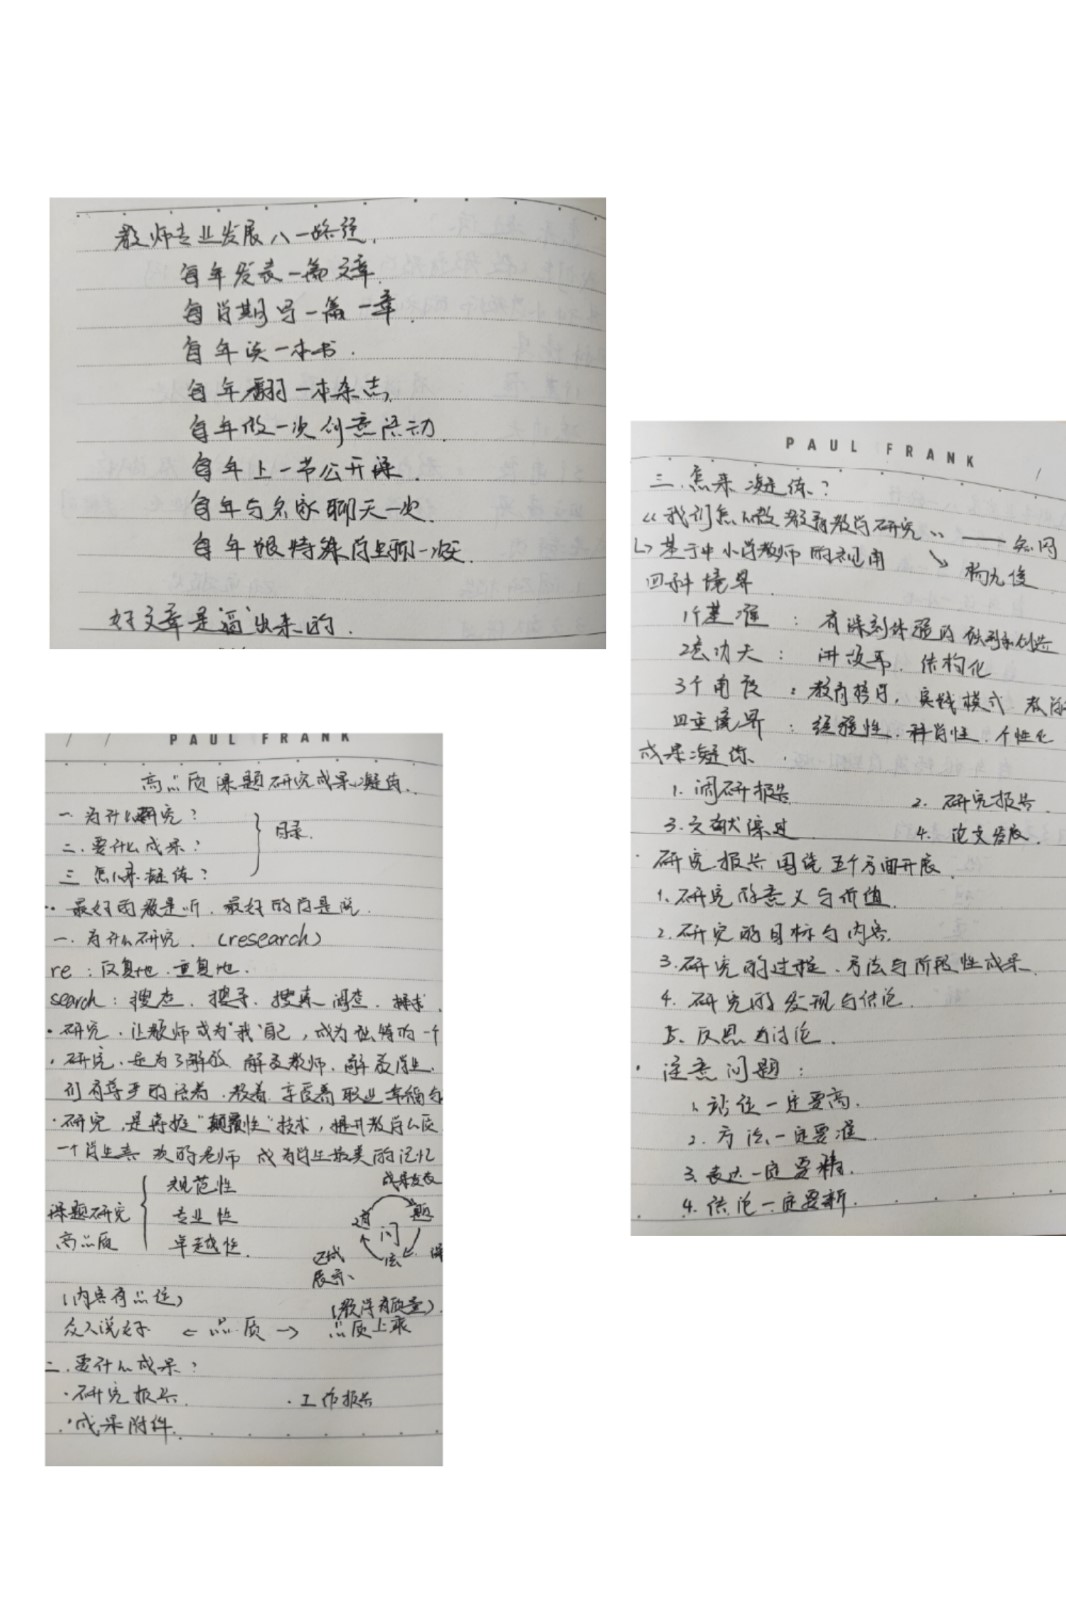 教师专业发展八一路径.
每年发表一篇文章.
每学期写一篇一章.
每年读一本书.
每年翻一本杂志.
每年做一次创意活动.
每年上一节公开课.
每年与名家聊天一次.
每年跟特殊学生聊一次.
好文章是"逼"出来的.
PAUL FRANK
高品质课题研究成果凝练.
一.为什么研究?
二.要什么成果? 目录.
三.怎么来凝练?
·最好的教是听.最好的学是说.
一.为什么研究.(research)
re:反复地.重复地.
search:搜查.搜寻.搜索.调查.探求.
·研究.让教师成为"我"自己,成为独特的一个
·研究.是为了解放.解放教师.解放学生.
们有尊严的活着.教着.享受着职业幸福与
·研究.是寻找"颠覆性"技术,提升教学
一个学生喜欢的老师 成为学生最美的记忆
规范性 成果发表
课题研究 专业性 道 问 题
高品质 卓越性. 法
达成
展示
(内容有品位) (教学有质量).
众人说好 ← 品质 → 品质上乘
二.要什么成果?
·研究报告. ·工作报告
·成果附件.
PAUL FRANK
三.怎来凝练?
《我们怎么做教育教学研究》 —— 知网
↳基于中小学教师的视角 ↘ 杨九俊
四种境界.
1个基准:有深刻体验的
2层功夫:讲故事.结构化
3个角度:教育哲学,实践模式
四重境界:经验性.科学性.个性化
成果凝练:
1.调研报告 2.研究报告.
3.文献综述 4.论文发展.
·研究报告围绕五个方面开展.
1.研究的意义与价值.
2.研究的目标与内容.
3.研究的过程.方法与阶段性成果.
4.研究的发现与结论.
5.反思与讨论.
·注意问题:
1.站位一定要高.
2.方法一定要准.
3.表达一定要精.
4.结论一定要新.